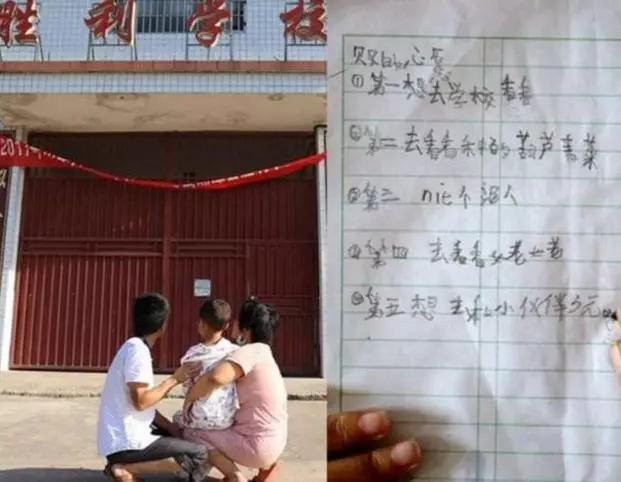 胜利学校
2017年
的心愿
①第一想去学校看看
②第二去看看 的葫芦 菜
③第三 nie个泥人
④第四 去看看姥姥
⑤第五想去和小伙伴